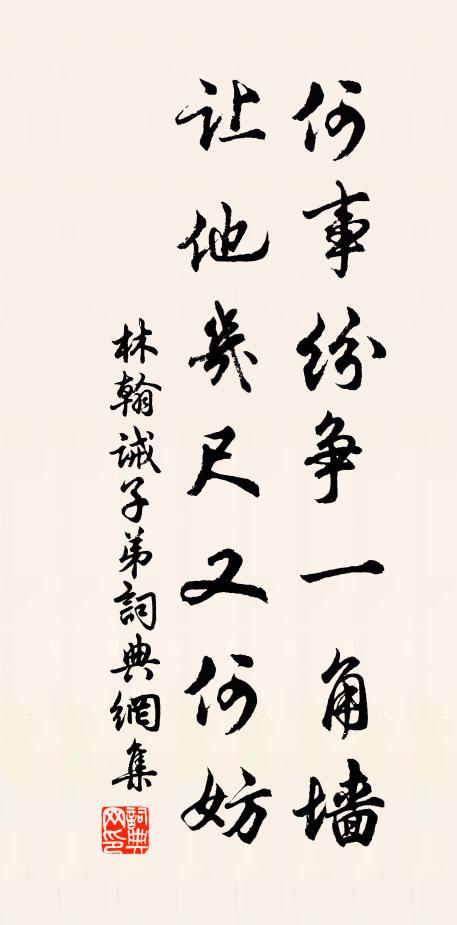 何事纷争一角墙
让他幾尺又何妨
林翰诫子弟詞典網集
詞典网印